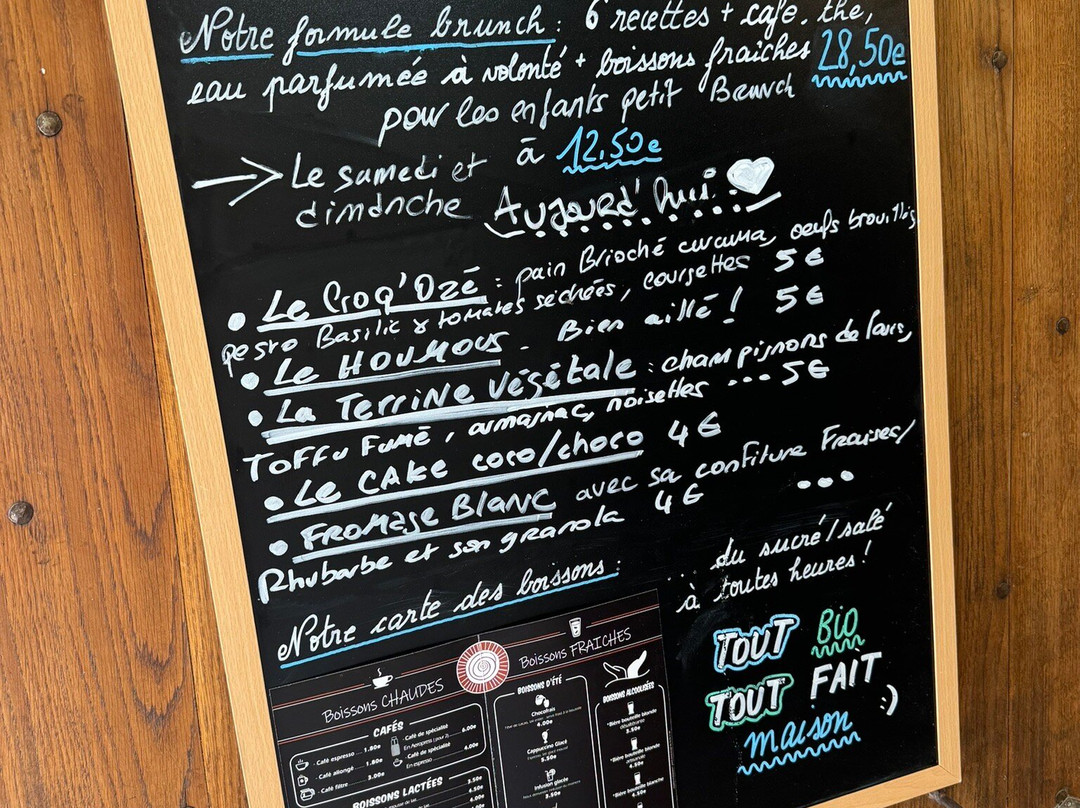 Notre formule brunch : 6 recettes + café, thé,
eau parfumée à volonté + boissons fraîches 28,50e
pour les enfants petit Brunch
à 12,50e
→ Le samedi et
dimanche
Aujourd'hui
• Le Croq'Ozé : pain Brioché curcuma, oeufs brouillés,
pesto Basilic & tomates séchées, courgettes 5€
• Le HOUMOUS - Bien aillé ! 5€
• La Terrine végétale : champignons de Paris,
Toffu Fumé, armagnac, noisettes ... 5€
• Le CAKe coco/choco 4€
• FROMAGE BLANC avec sa confiture Fraises/
Rhubarbe et son granola 4€ ...
... du sucré/salé
à toutes heures !
Notre carte des boissons :
TOUT Bio
TOUT FAIT
maison :)
Boissons CHAUDES
CAFÉS
Café espresso 1.80e
Café allongé 1.80e
Café filtre 3.00e
Café de spécialité 6.00e
En Aeropress (pour 2)
Café de spécialité 4.00e
En espresso
BOISSONS LACTÉES
3.50e
4.50e
Boissons FRAICHES
BOISSONS D'ÉTÉ
Chocofrais
4.00e
Cappuccino Glacé
5.50e
Infusion glacée
3.50e
BOISSONS ALCOOLISÉES
*Bière bouteille blonde
3.50e
*Bière bouteille blonde
4.50e
*Bière bouteille blanche
4.50e